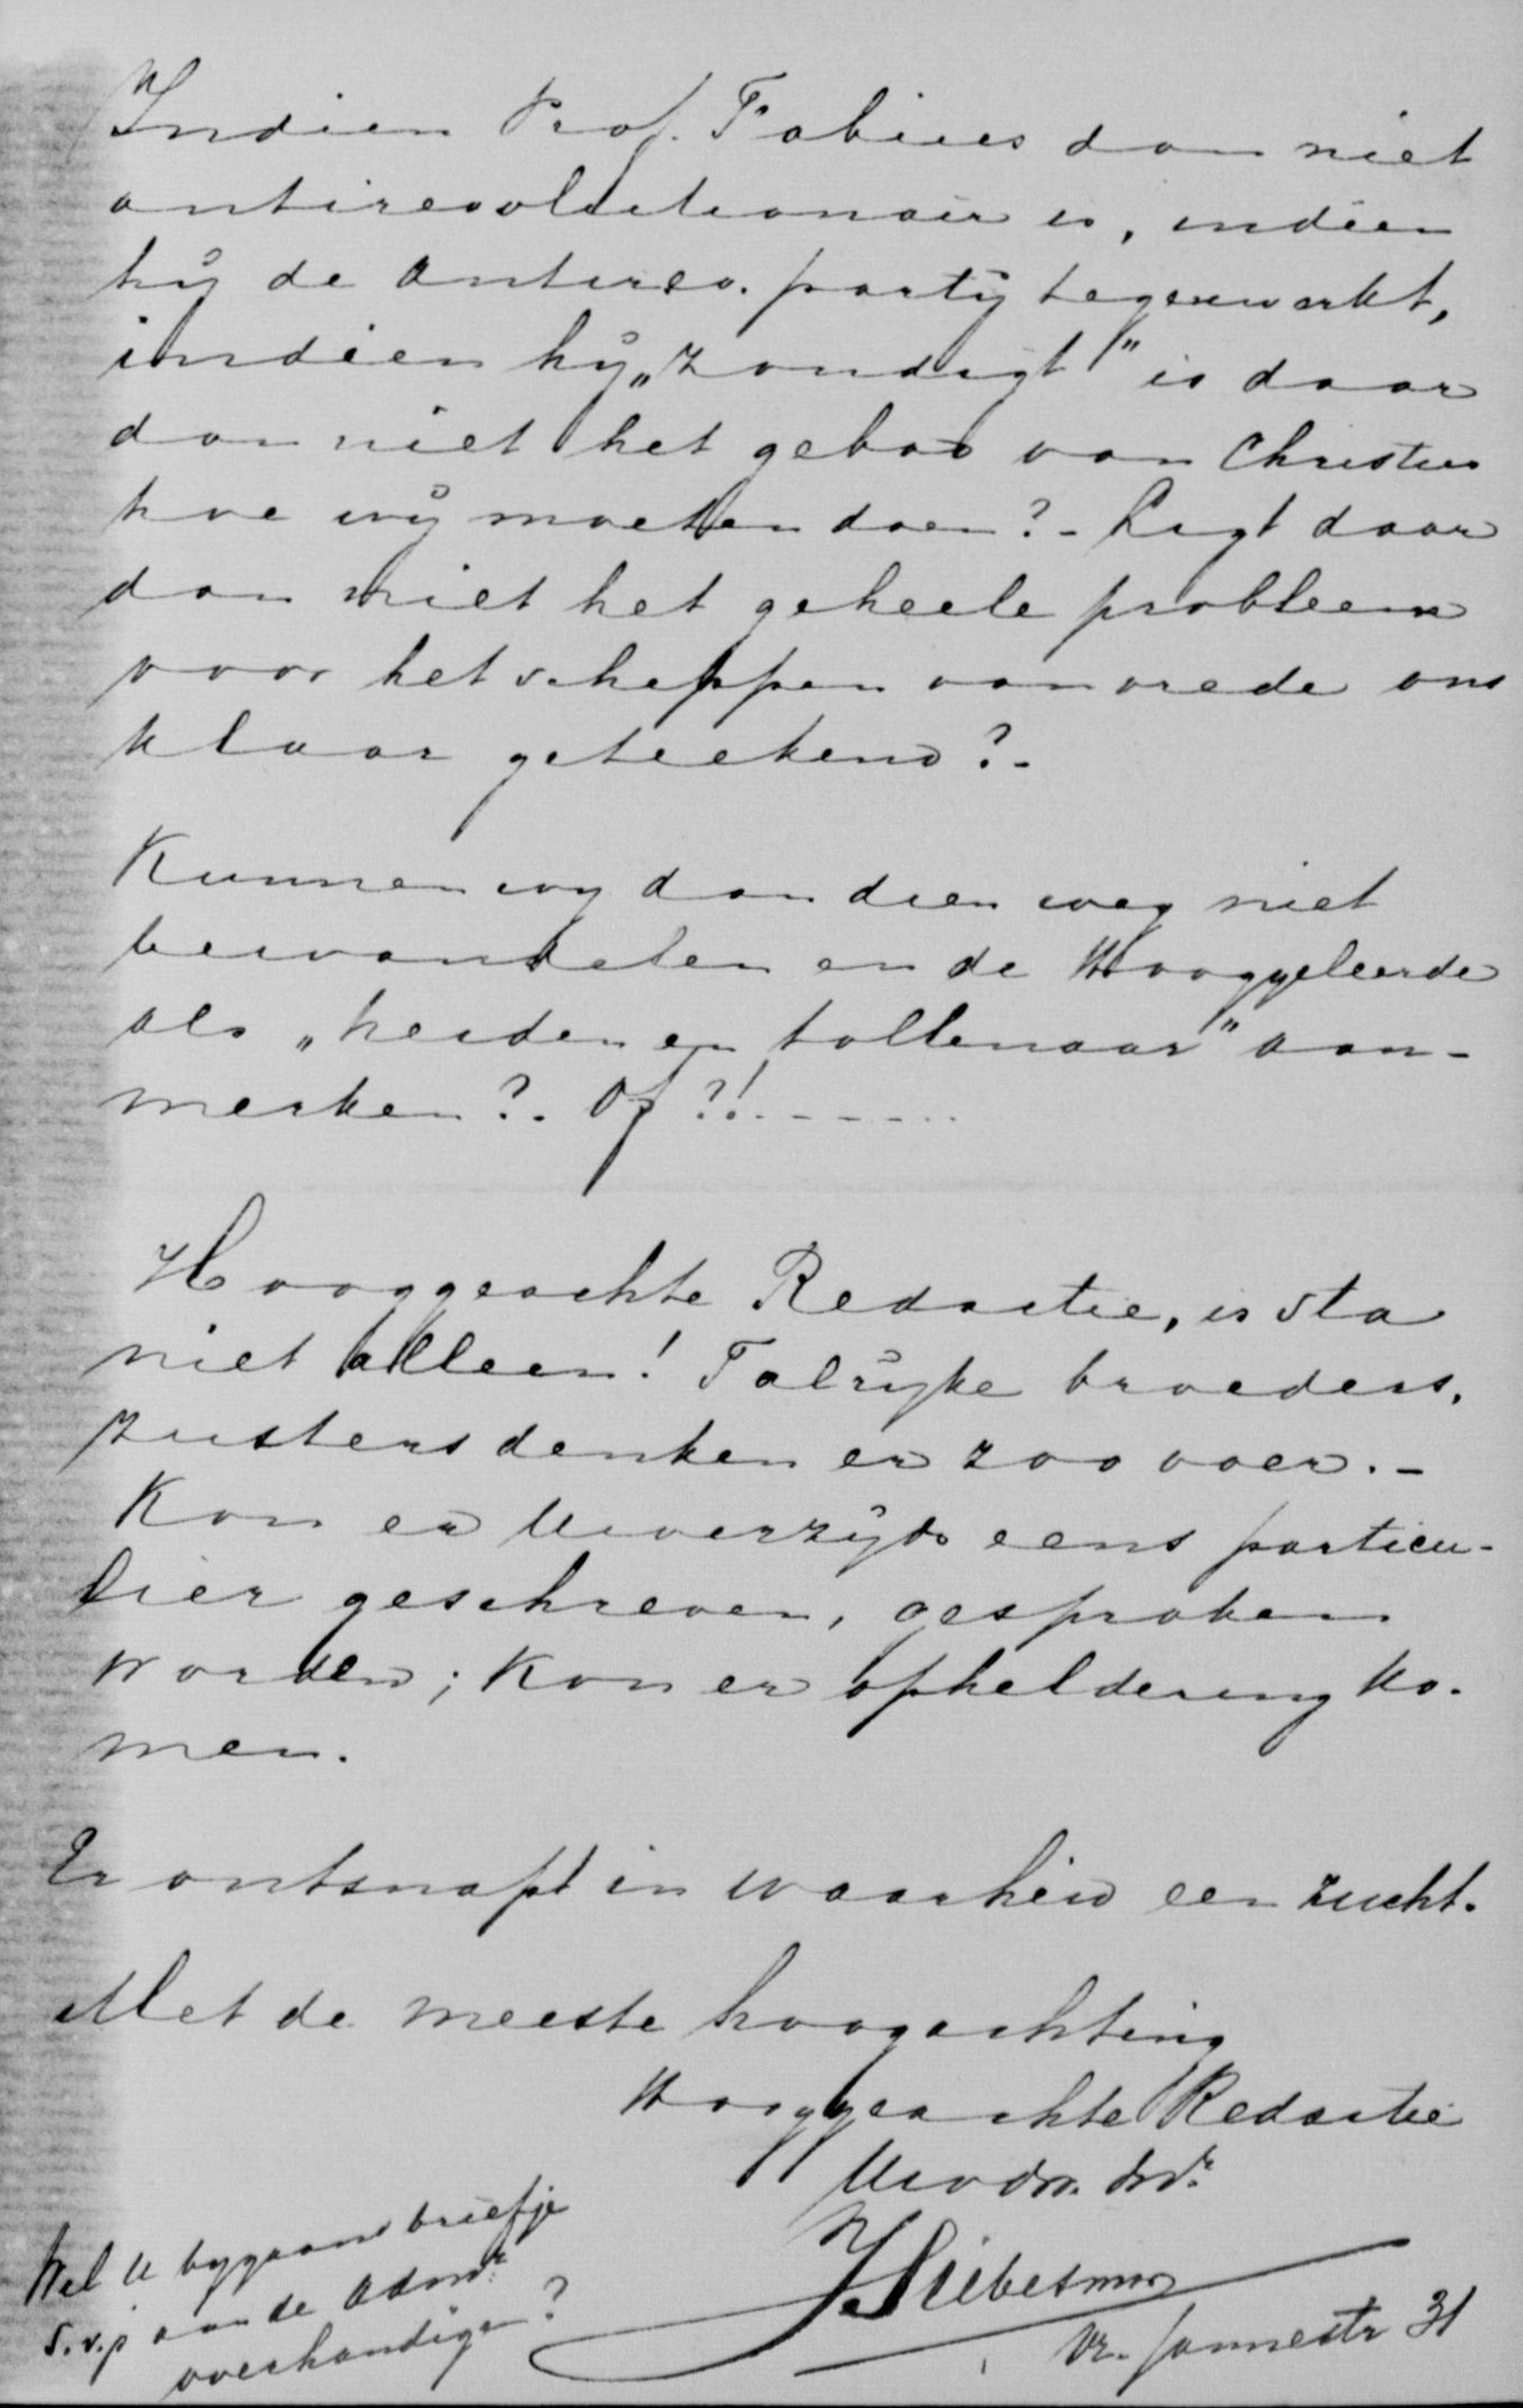 Indien Prof. Fabius dan niet
antirevolutionair is, indien
hij de Antirev. partij tegenwerkt,
indien hij „zondigt" is daar
dan niet het gebod van Christus
hoe wij moeten doen? - Ligt daar
dan niet het geheele probleem
voor het scheppen van vrede ons
klaar geteekend? -
Kunnen wij dan dien weg niet
bewandelen en de Hooggeleerde
als „heiden en tollenaar" aan-
merken? . Of ?! . - - - - . .
Hooggeachte Redactie, ik sta
niet alleen! Talrijke broeders,
zusters denken er zoo over. -
Kon er Uwerzijds eens particu-
lier geschreven, gesproken
worden; kon er opheldering ko-
men.
Er ontsnapt in waarheid een zucht.
Met de meeste hoogachting
Hooggeachte Redactie
Uwdw. dnr.
Wil U bygaand briefje
s.v.p aan de Admr.
overhandigen?
31